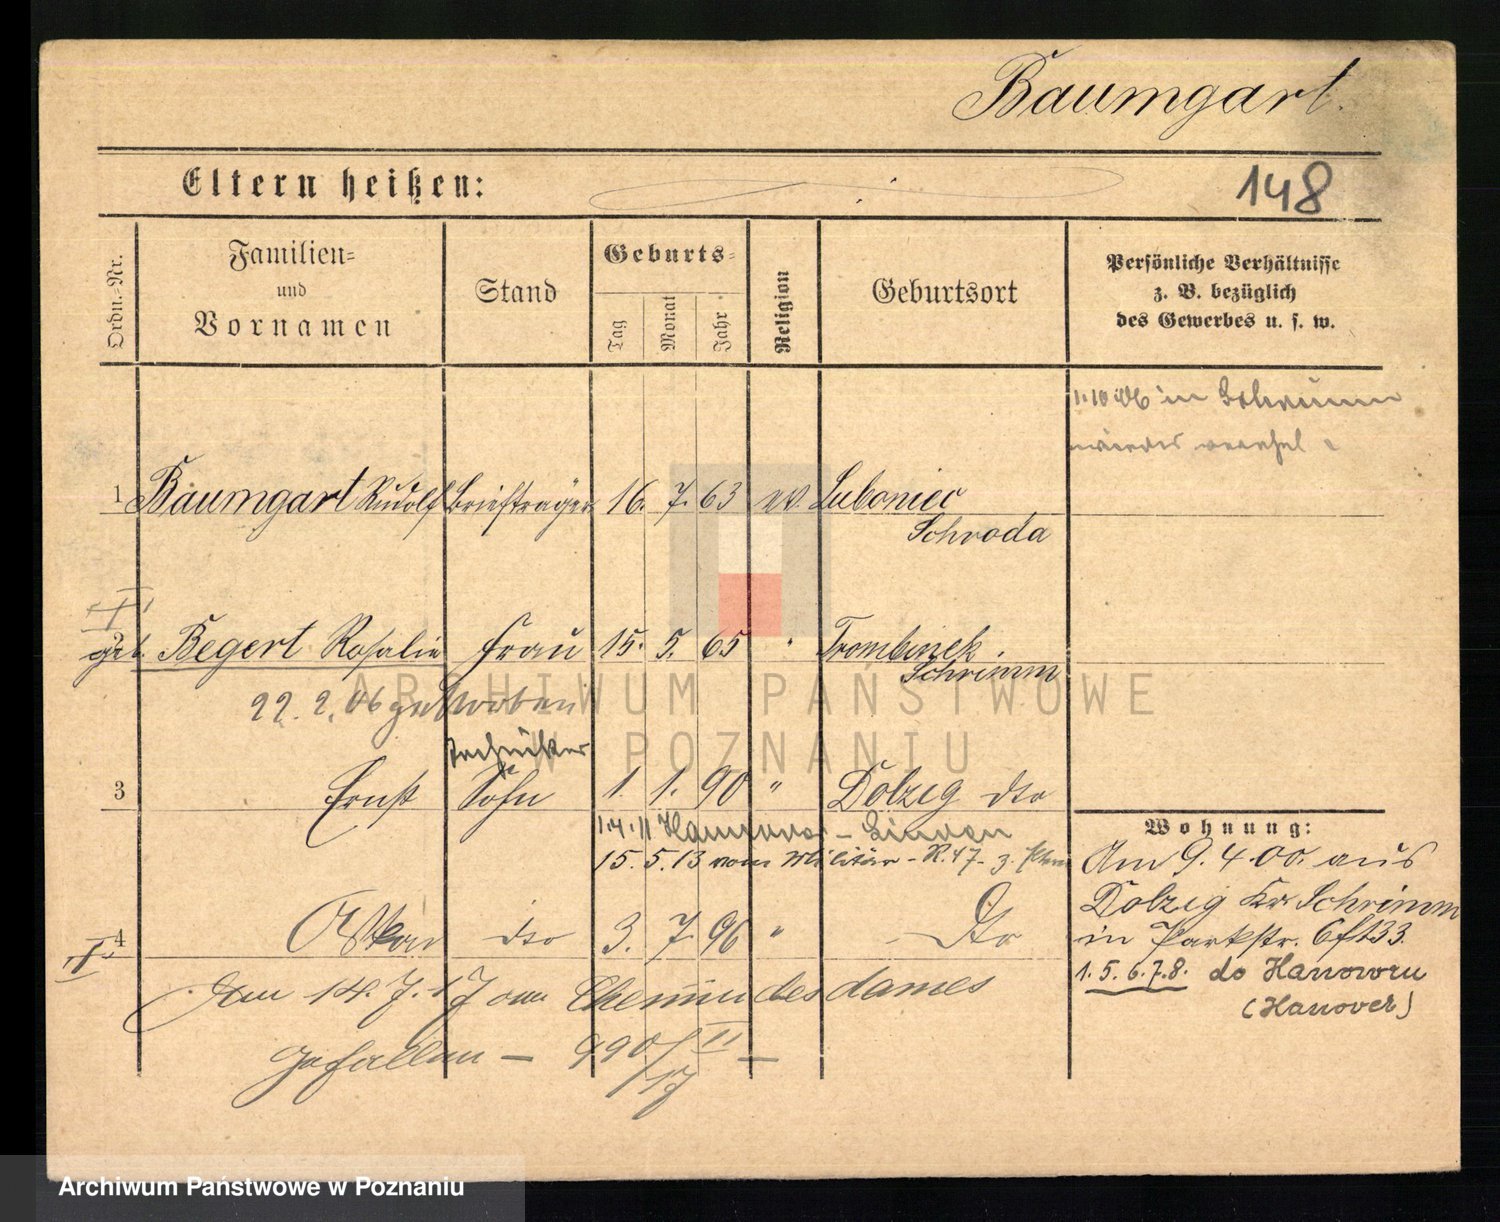 Baumgart.
Eltern heißen:
148
Ordn.-Nr.
Familien-
und
Vornamen
Stand
Geburts-
Tag
Monat
Jahr
Religion
Geburtsort
Persönliche Verhältnisse
z. B. bezüglich
des Gewerbes u. s. w.
1.10.06 in Schrimm
wieder verehel.
1 Baumgart Rudolf Briefträger 16. 7. 63 ev. Luboniec
Schroda
2 geb. Begert Rosalie Frau 15. 5. 65 " Trombinek
Schrimm
22.2.06 gestorben
ARCHIWUM PAŃSTWOWE
W POZNANIU
Techniker
3 Ernst Sohn 1. 1. 90 " Dolzig dto
1.4.11 Hannover - Linden
15.5.13 vom Militär - R. 47 - z.
4 Oskar dto 3. 7. 96 " Dto
Am 14.7.17 am Chemin des dames
gefallen - 990/II
/17
Wohnung:
Am 9.4.00. aus
Dolzig Kr. Schrimm
in Parkstr. 6 ft 33.
1.5.6.7.8. do Hanoweru
(Hanover)
Archiwum Państwowe w Poznaniu